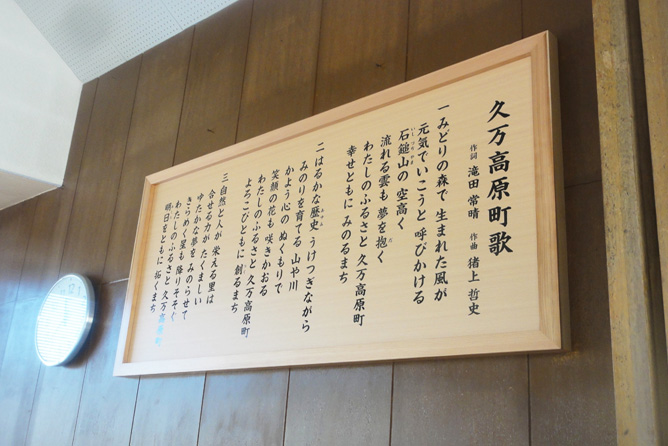 久万高原町歌
作詞 滝田 常晴 作曲 猪上 哲史
一 みどりの森で 生まれた風が
元気でいこうと 呼びかける
石鎚山の 空高く
流れる雲も 夢を抱く
わたしのふるさと 久万高原町
幸せともに みのるまち
二 はるかな歴史 うけつぎながら
みのりを育てる 山や川
かよう心の ぬくもりで
笑顔の花も 咲きかおる
わたしのふるさと 久万高原町
よろこびともに 創るまち
三 自然と人が 栄える里は
合せる力が たくましい
ゆたかな夢を みのらせて
きらめく星も 降りそそぐ
わたしのふるさと 久万高原町
明日をともに 拓くまち